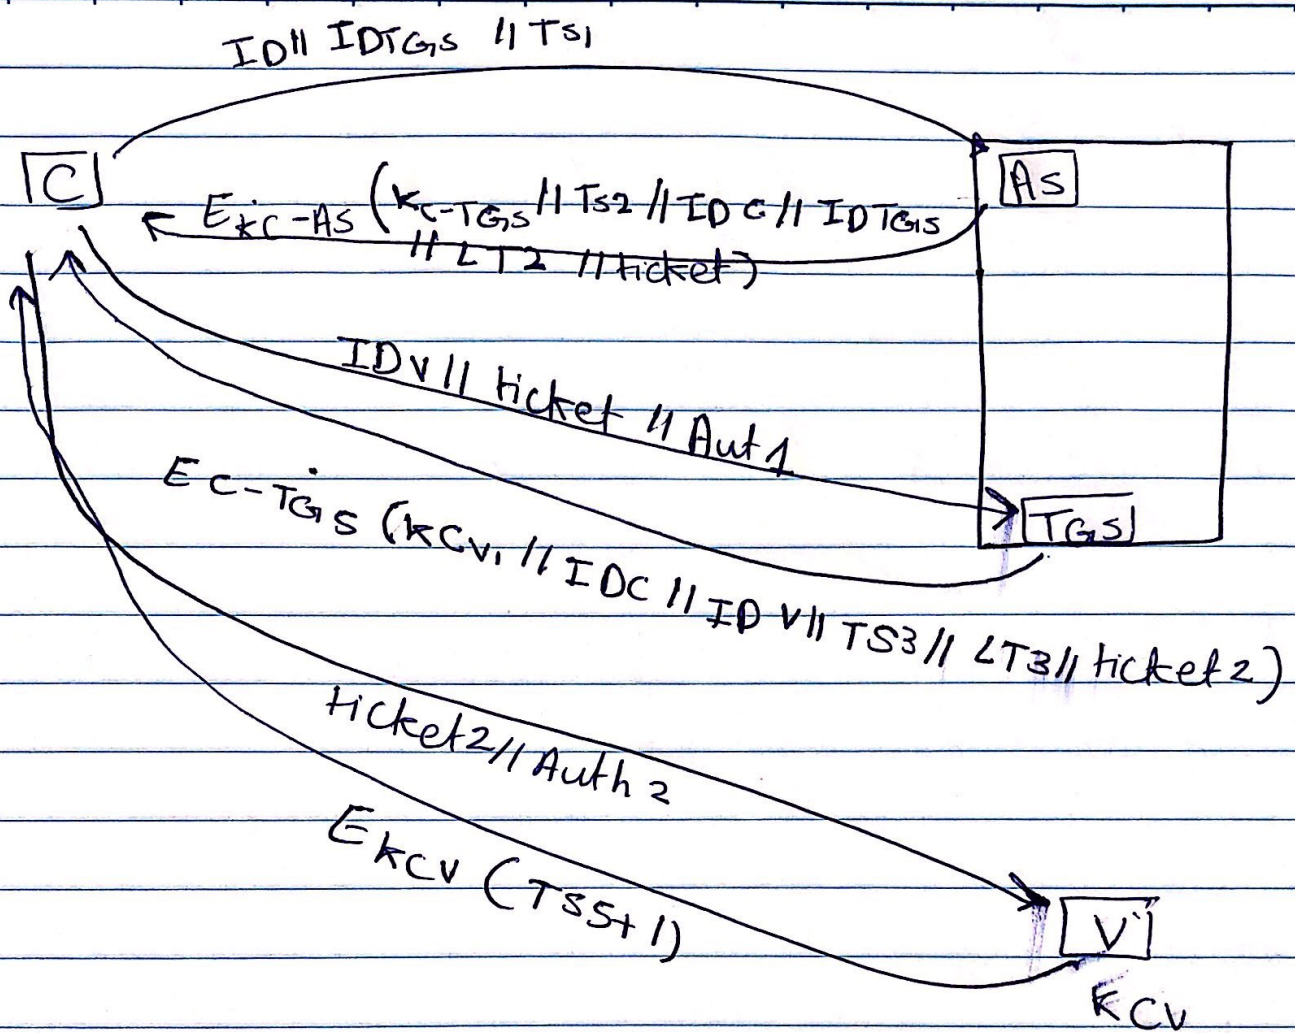 ID || IDTGS || TS1
C
AS
EKC-AS (KC-TGS || TS2 || IDC || IDTGS
|| LT2 || ticket)
IDV || ticket || Aut1
TGS
EC-TGS (KCV, || IDC || IDV || TS3 || LT3 || ticket2)
ticket2 || Auth2
EKCV (TS5+1)
V
KCV